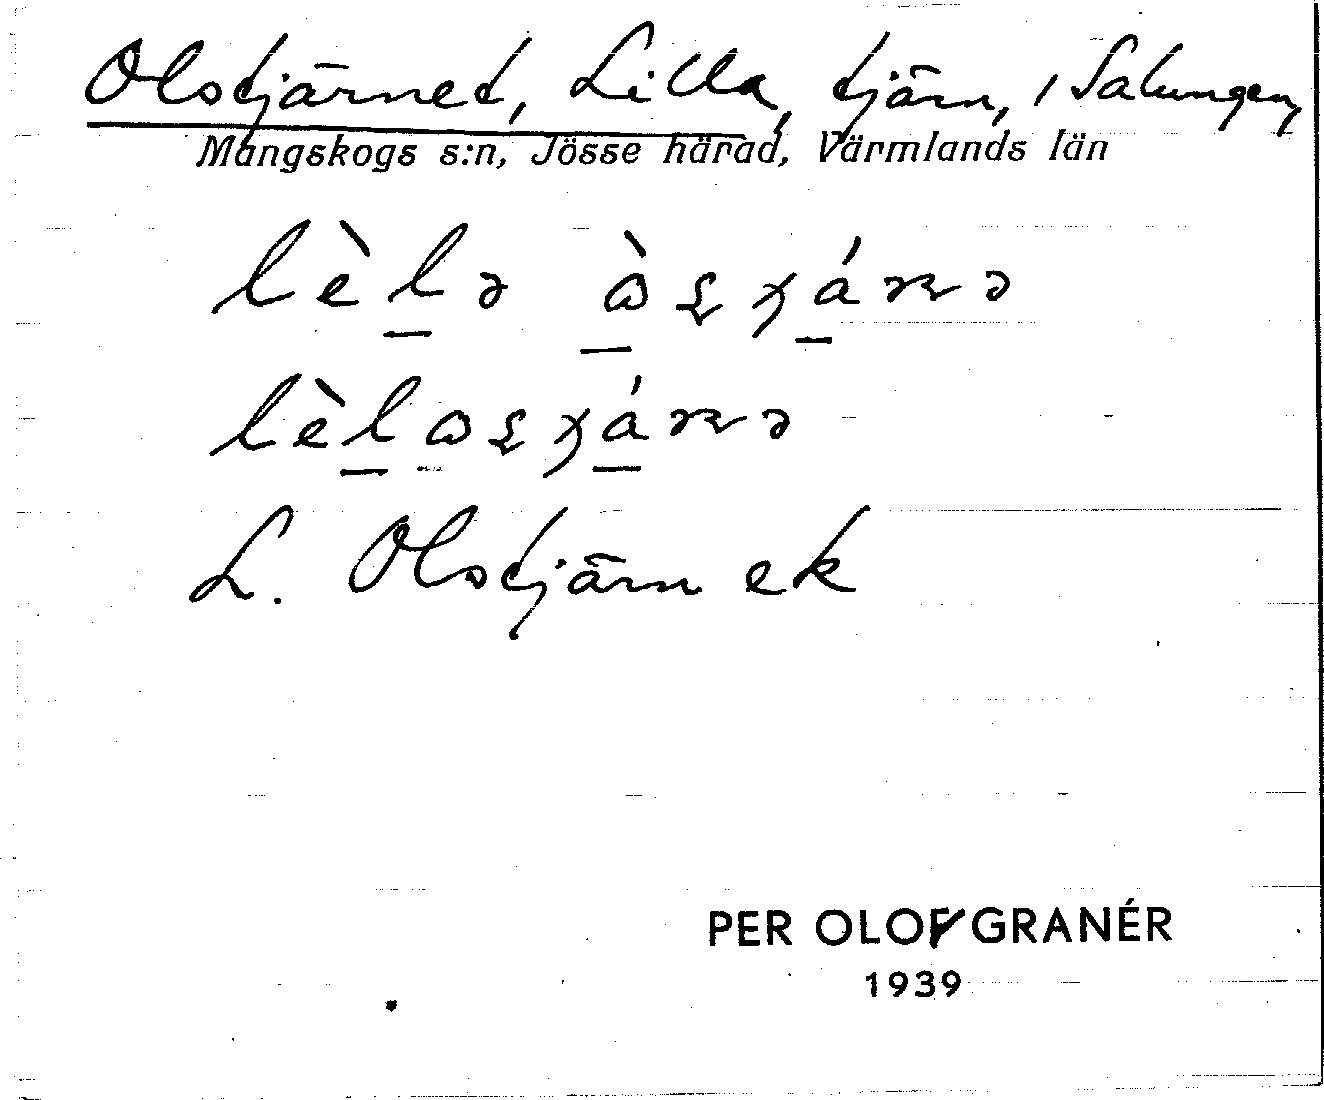 Olstjärnet, Lilla, tjärn, i Salungen,
Mangskogs s:n, Jösse härad, Värmlands län
L. Olstjärn ek
PER OLOF GRANÉR
1939